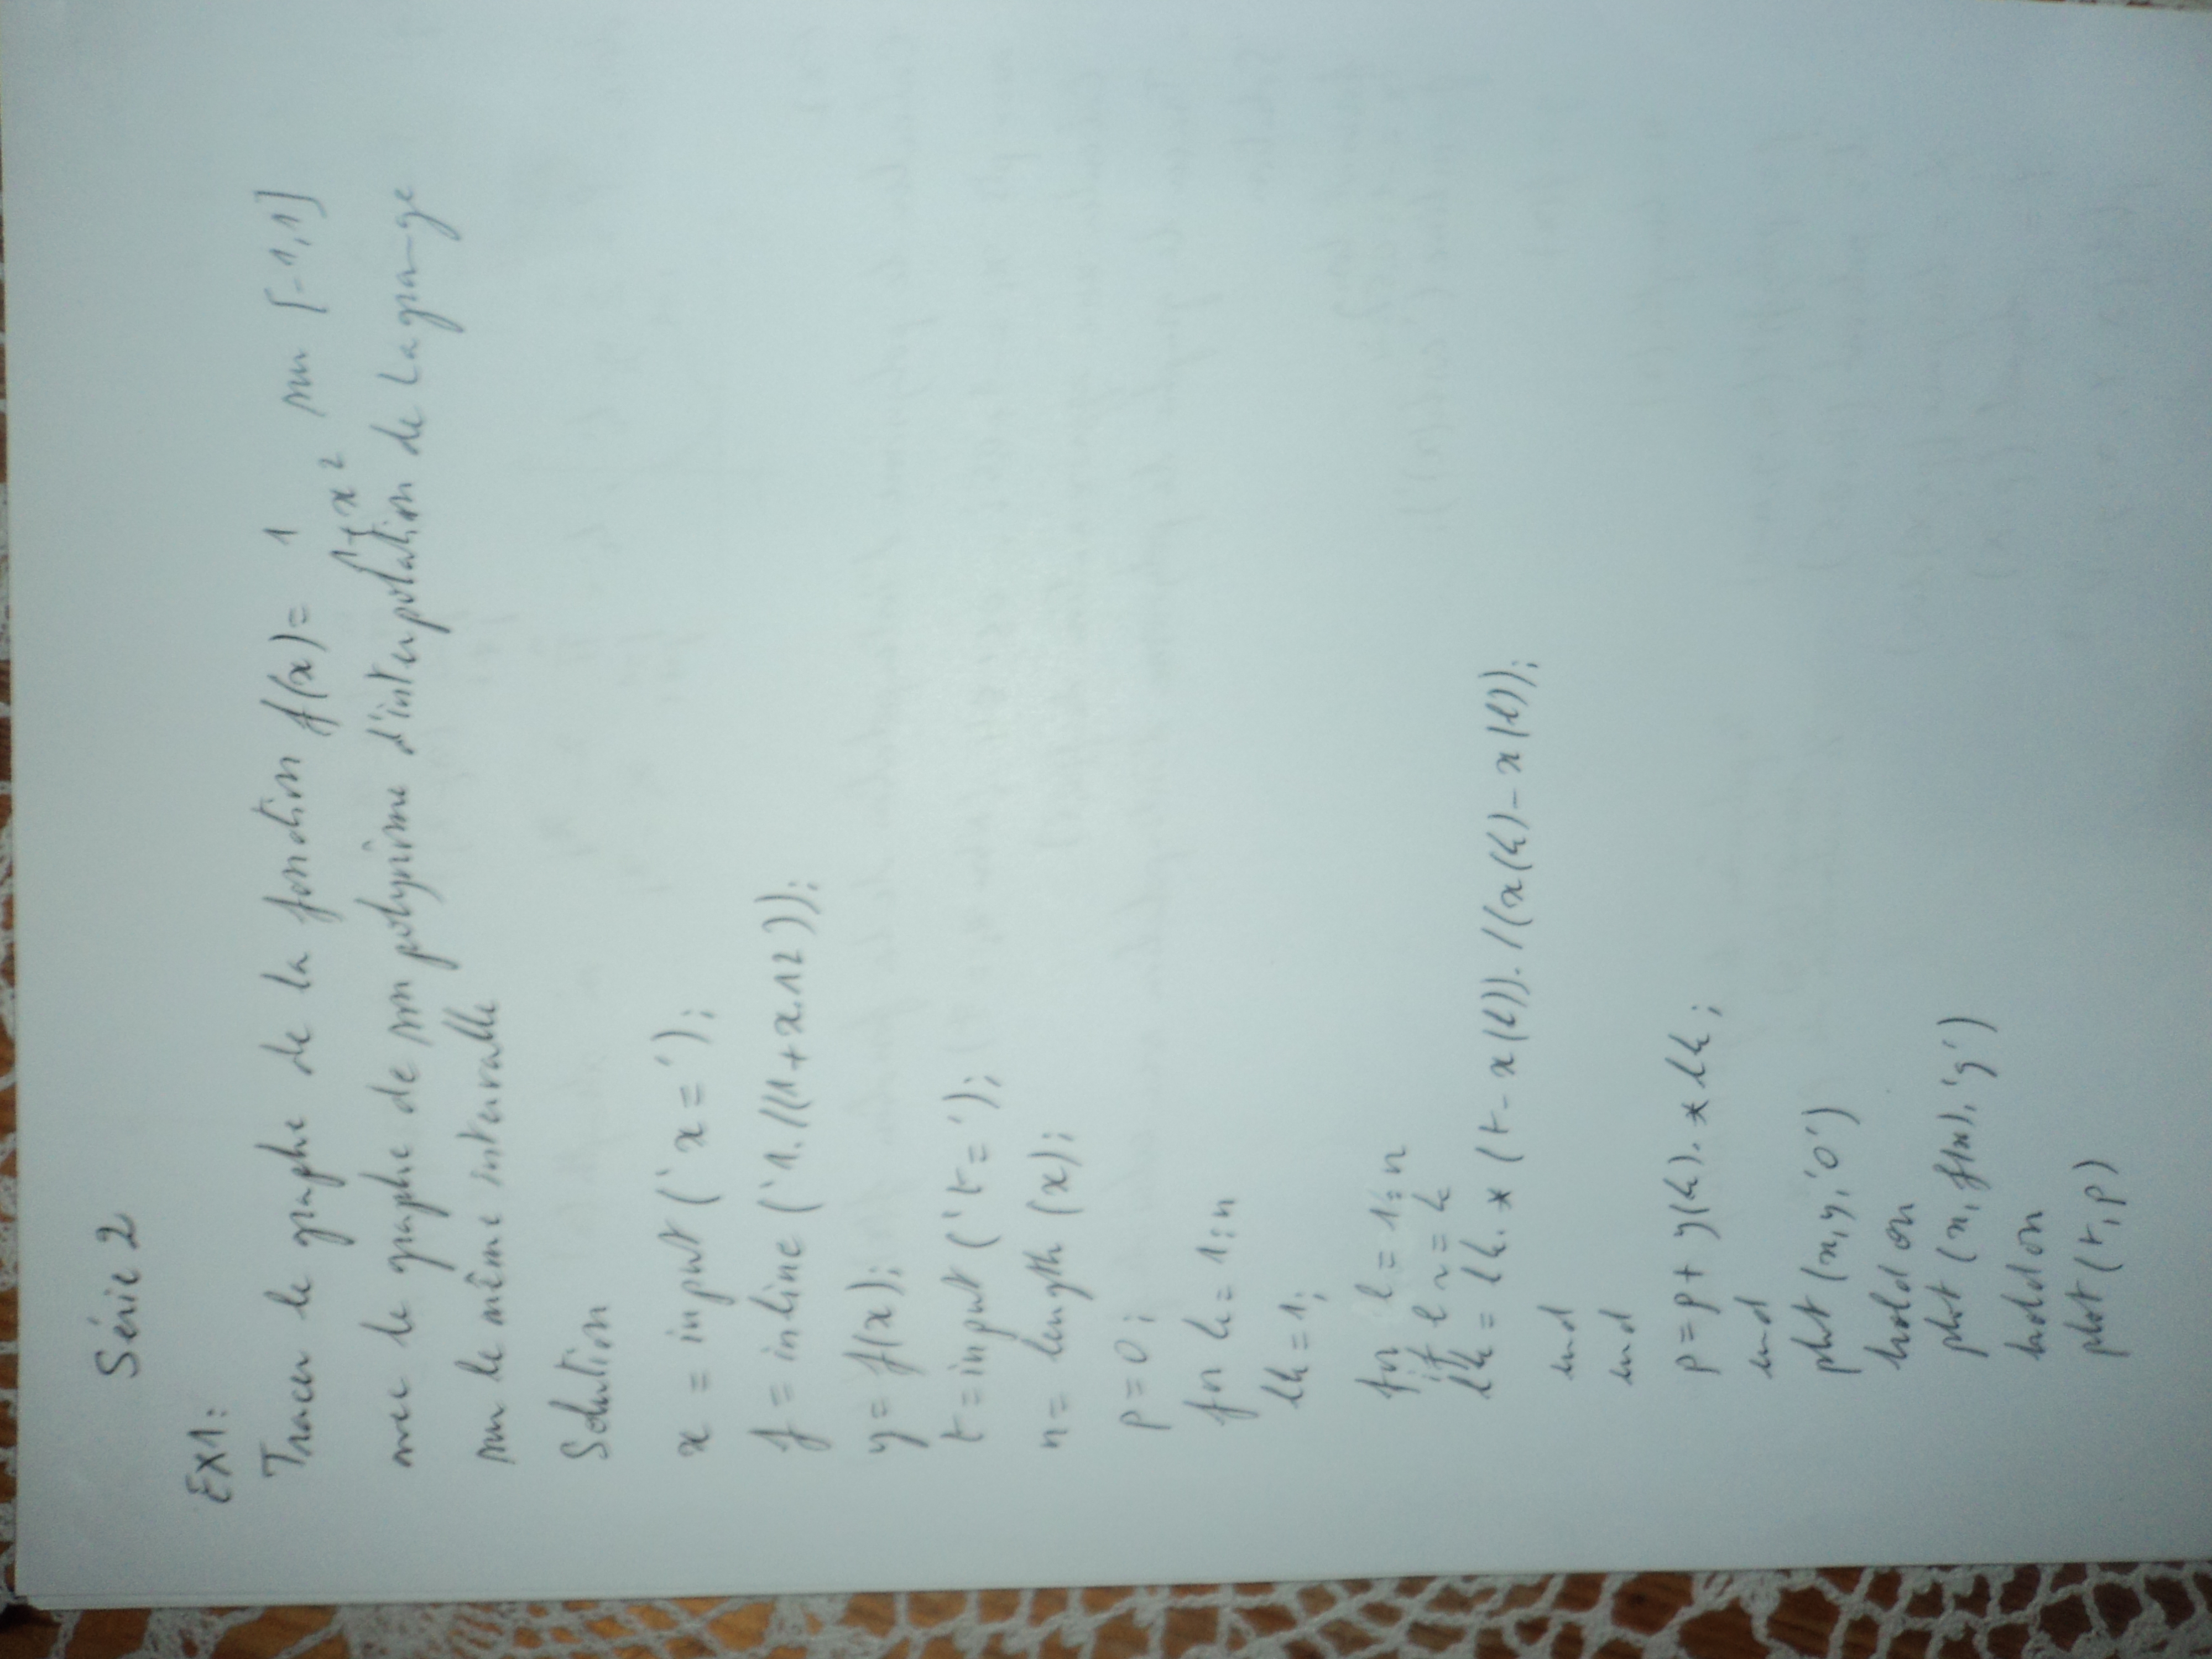 Série 2
EX1:
Tracer le graphe de la fonction f(x) = 1/(1+x²) sur [-1,1]
avec le graphe de son polynôme d'interpolation de Lagrange
sur le même intervalle
Solution
x = input ('x=');
f = inline ('1./(1+x.^2)');
y = f(x);
t = input ('t=');
n = length (x);
p = 0;
for k = 1:n
lk = 1;
for l = 1:n
if l ~= k
lk = lk.*(t-x(l))./(x(k)-x(l));
end
end
p = p + y(k).*lk;
end
plot (x,y,'o')
hold on
plot (x,f(x),'g')
hold on
plot (t,p)